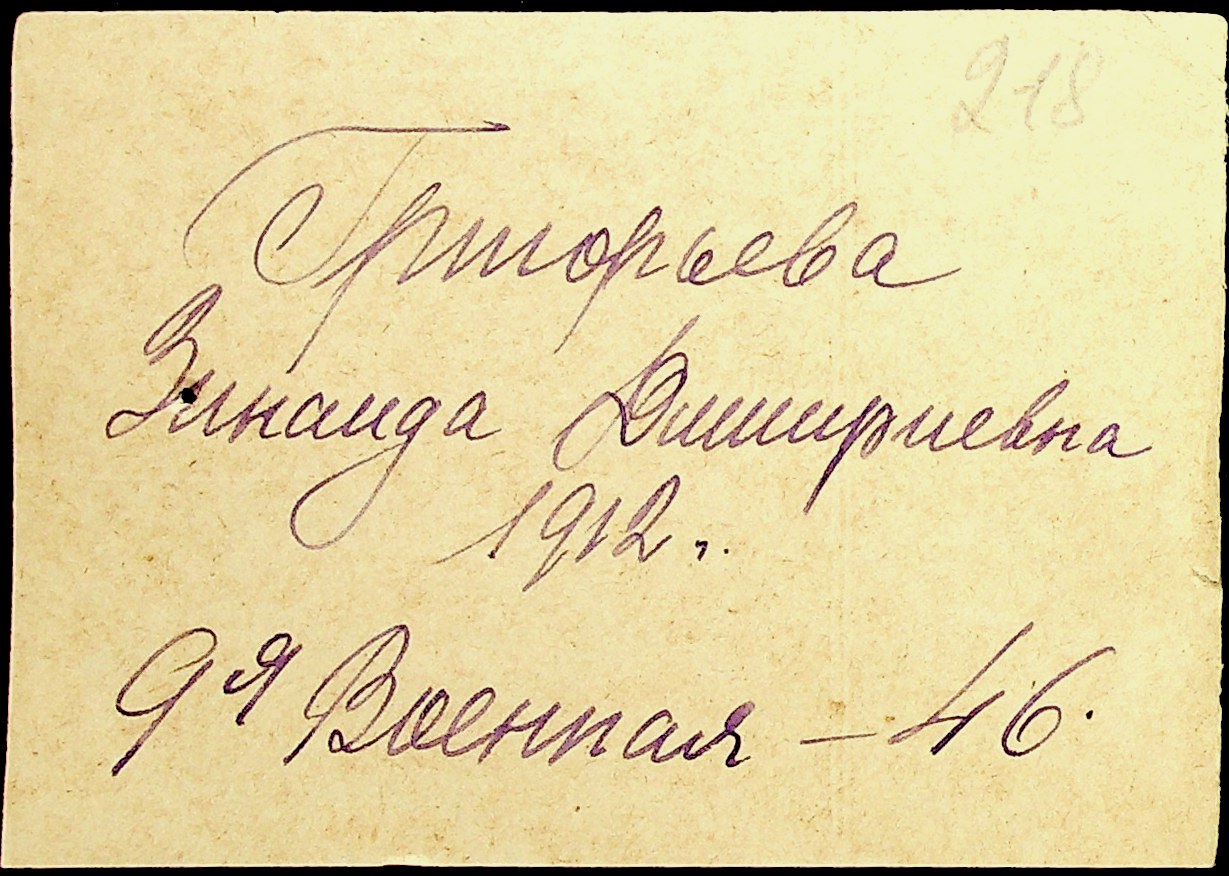 218
Григорьева
Зинаида Дмитриевна
1912 г.
9я Военная - 46.